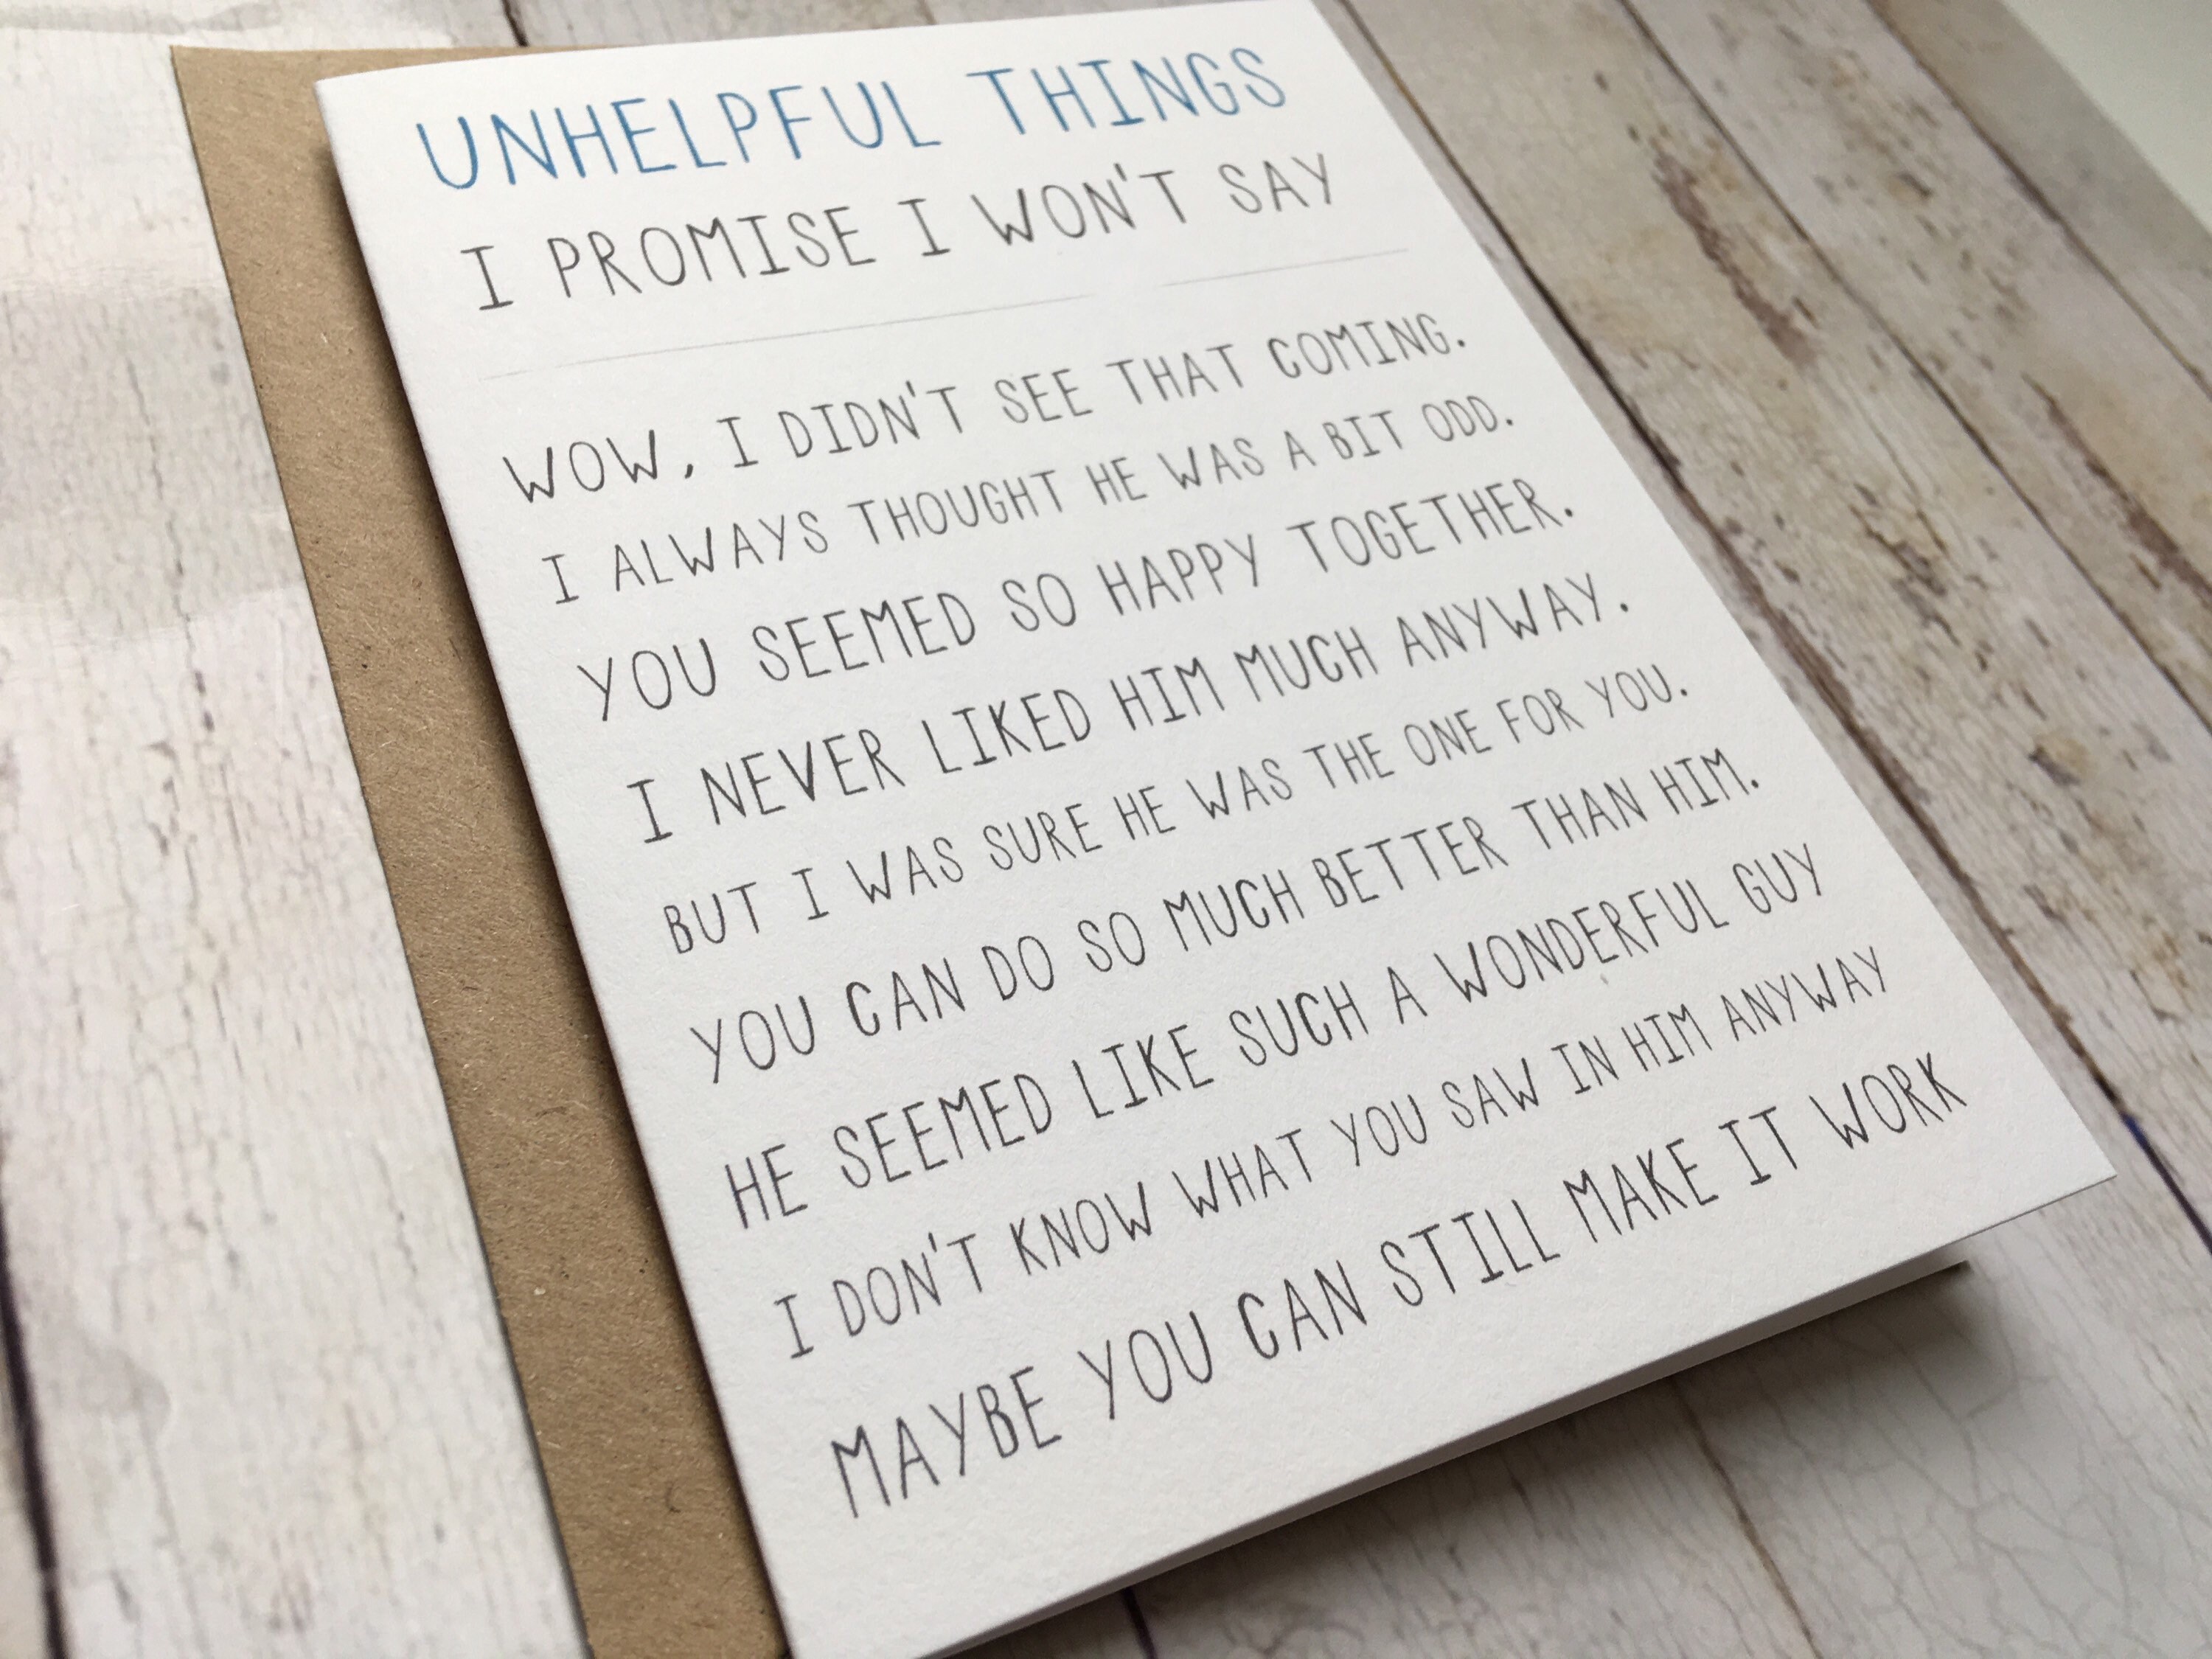 UNHELPFUL THINGS
I PROMISE I WON'T SAY
WOW, I DIDN'T SEE THAT COMING.
I ALWAYS THOUGHT HE WAS A BIT ODD.
YOU SEEMED SO HAPPY TOGETHER.
I NEVER LIKED HIM MUCH ANYWAY.
BUT I WAS SURE HE WAS THE ONE FOR YOU.
YOU CAN DO SO MUCH BETTER THAN HIM.
HE SEEMED LIKE SUCH A WONDERFUL GUY
I DON'T KNOW WHAT YOU SAW IN HIM ANYWAY
MAYBE YOU CAN STILL MAKE IT WORK